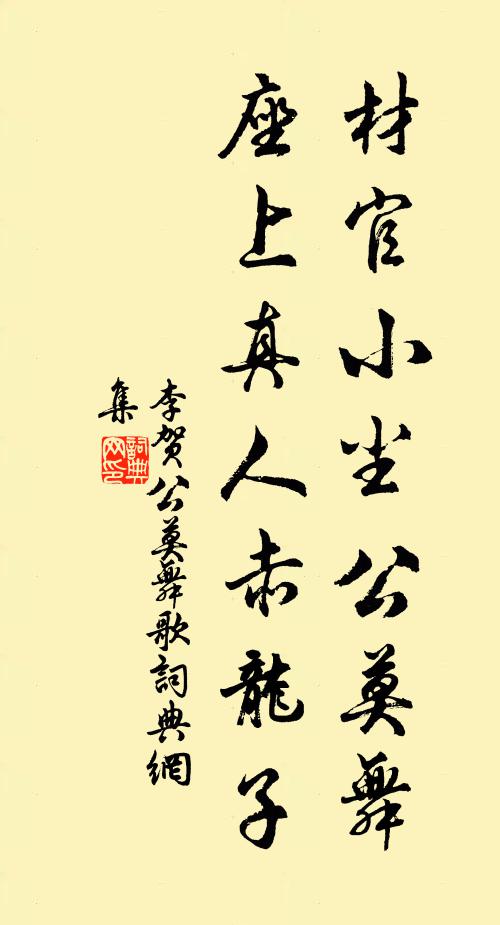 材官小尘公莫舞
座上真人赤龍子
李贺公莫舞歌詞典網
集
詞典
网印